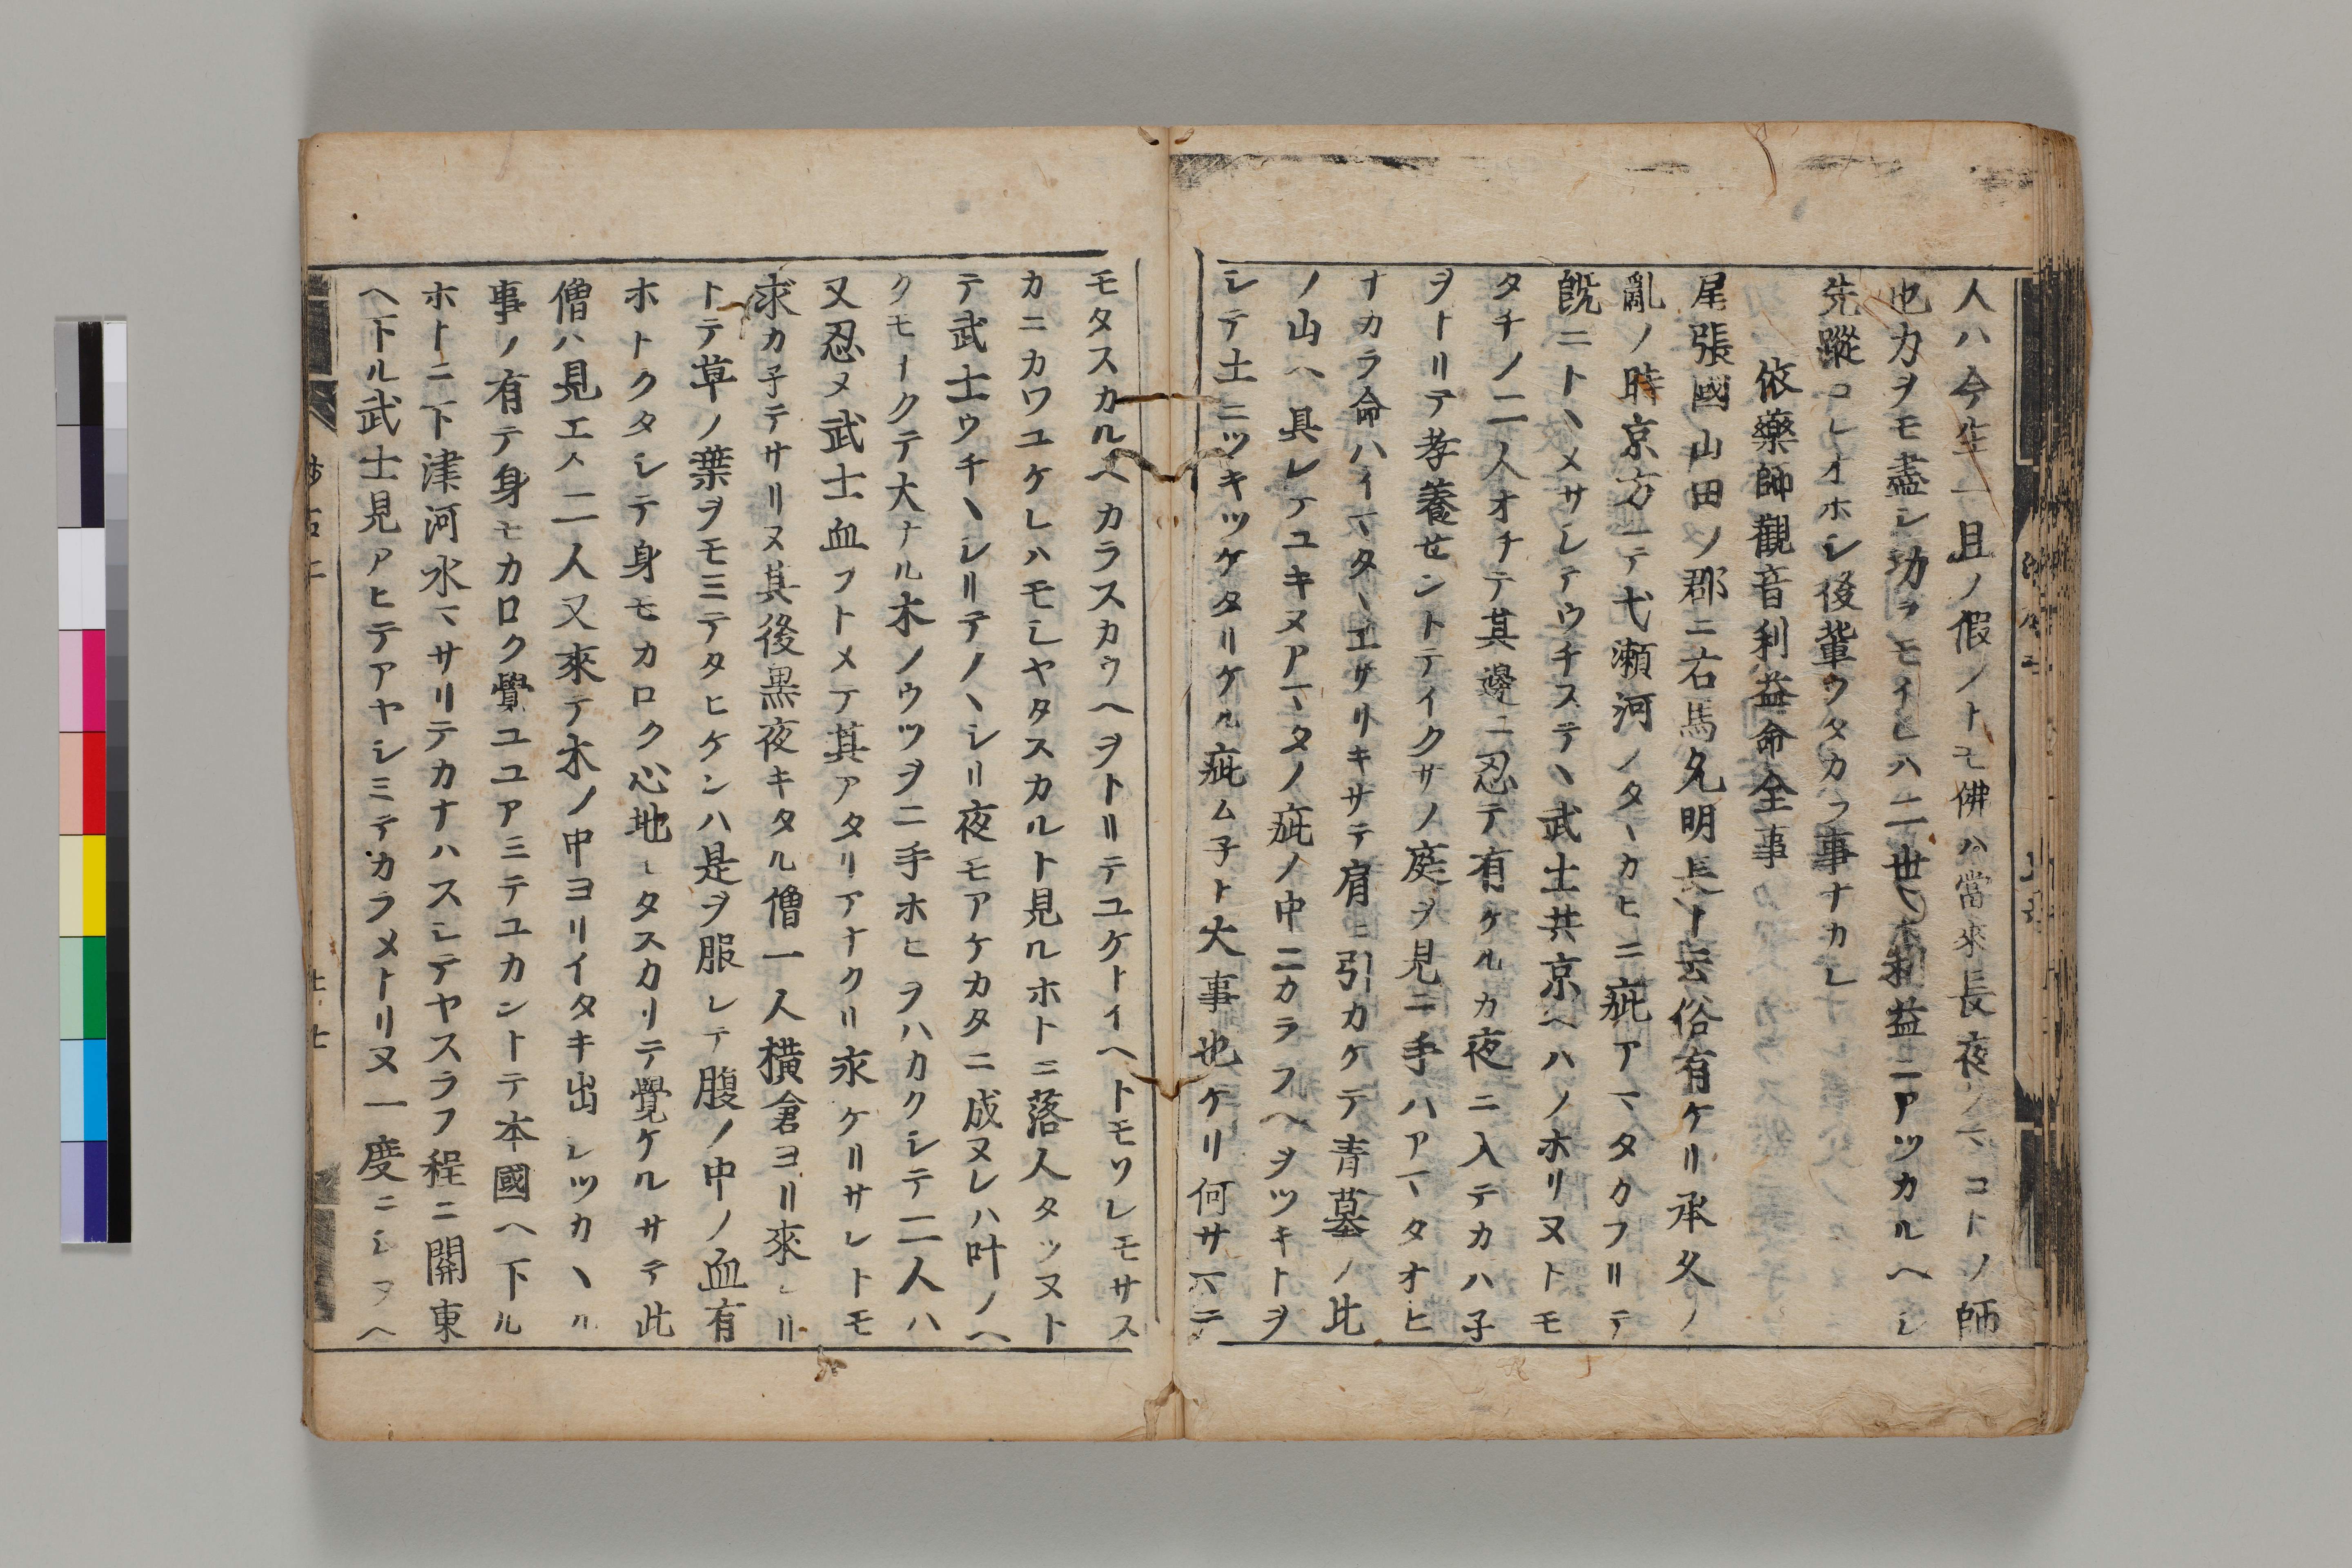 人ハ今生一旦ノ假ノトモ佛ハ當來長夜ノマコトノ師
也力ヲモ盡シ功ヲモイヒハ二世ノ利益ニアツカルヘシ
先蹤コレオホシ後輩ウタカフ事ナカレ
依藥師觀音利益命全事
尾張國山田ノ郡ニ右馬允明長ト云俗有ケリ承久ノ
亂ノ時京方ニテ弋瀬河ノタヽカヒニ疵アマタカフリテ
既ニトヽメサレテウチステヽ武士共京ヘハノホリヌトモ
タチノ二人オチテ其邊ニ忍テ有ケルカ夜ニ入テカハ子
ヲトリテ孝養せントテイクサノ庭ヲ見ニ手ハアマタオヒ
ナカラ命ハイマタヽエサリキサテ肩ニ引カケテ青墓ノ北
ノ山ヘ具レケユキヌアマタノ疵ノ中ニカラフヘヲツキトヲ
シテ土ニツキツケタリケル疵ム子ト大事也ケリ何サマニ
モタスカルヘカラスカウヘヲトリテユケトイヘトモソレモサス
カニカワユケレハモシヤタスカルト見ルホトニ落人タツヌト
テ武士ウチヽシリテノヽシリ夜モアケカタニ成ヌレハ叶ノヘ
クモナクテ大ナル木ノウツヲニ手ホヒヲハカクシテ二人ハ
又忍ヌ武士血ヲトメテ其アタリアナクリ求ケリサレトモ
求カ子テサリヌ其後黒夜キタル僧一人横倉ヨリ來レリ
トテ草ノ葉ヲモミテタヒケンハ是ヲ服レテ腹ノ中ノ血有
ホトクタシテ身モカロク心地モタスカリテ覺ケルサテ此
僧ハ見エス二人又來テ木ノ中ヨリイタキ出レツカヽル
事ノ有テ身モカロク覺ユユアミテユカントテ本國ヘ下ル
ホトニ下津河水マサリテカナハスシテヤスラフ程ニ關東
ヘ下ル武士見アヒテアヤシミテカラメトリヌ一度ニシヌヘ